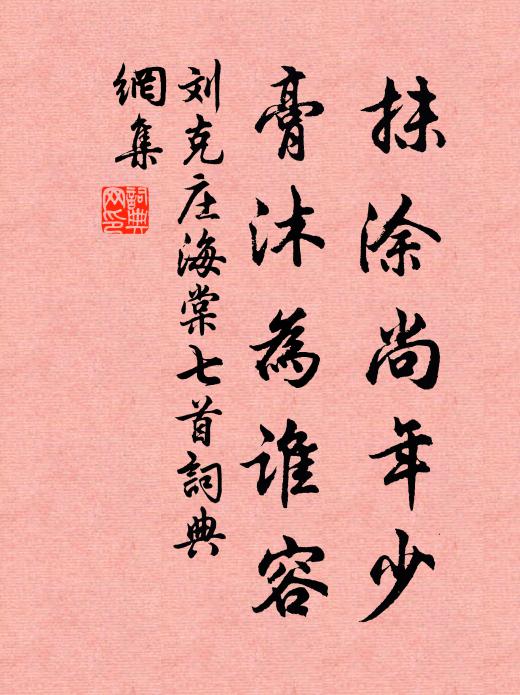 抹涂尚年少
膏沐為谁容
刘克庄海棠七首詞典
網集
詞典
网印